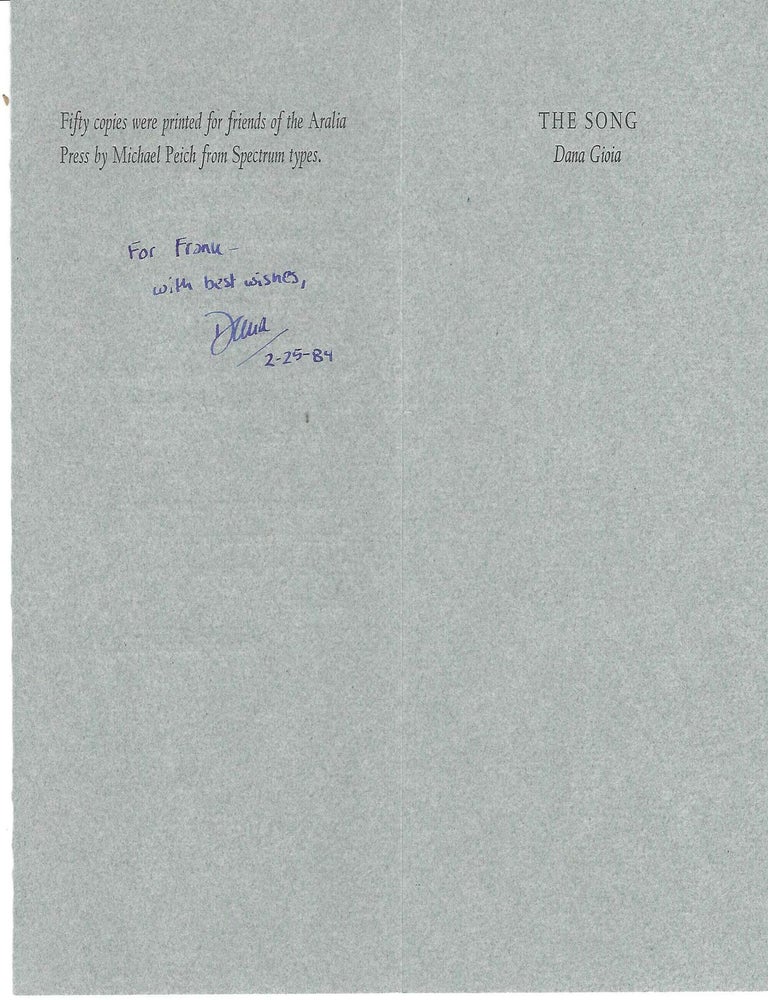 Fifty copies were printed for friends of the Aralia
Press by Michael Peich from Spectrum types.
For Frank –
with best wishes,
Dana
2-25-84
THE SONG
Dana Gioia